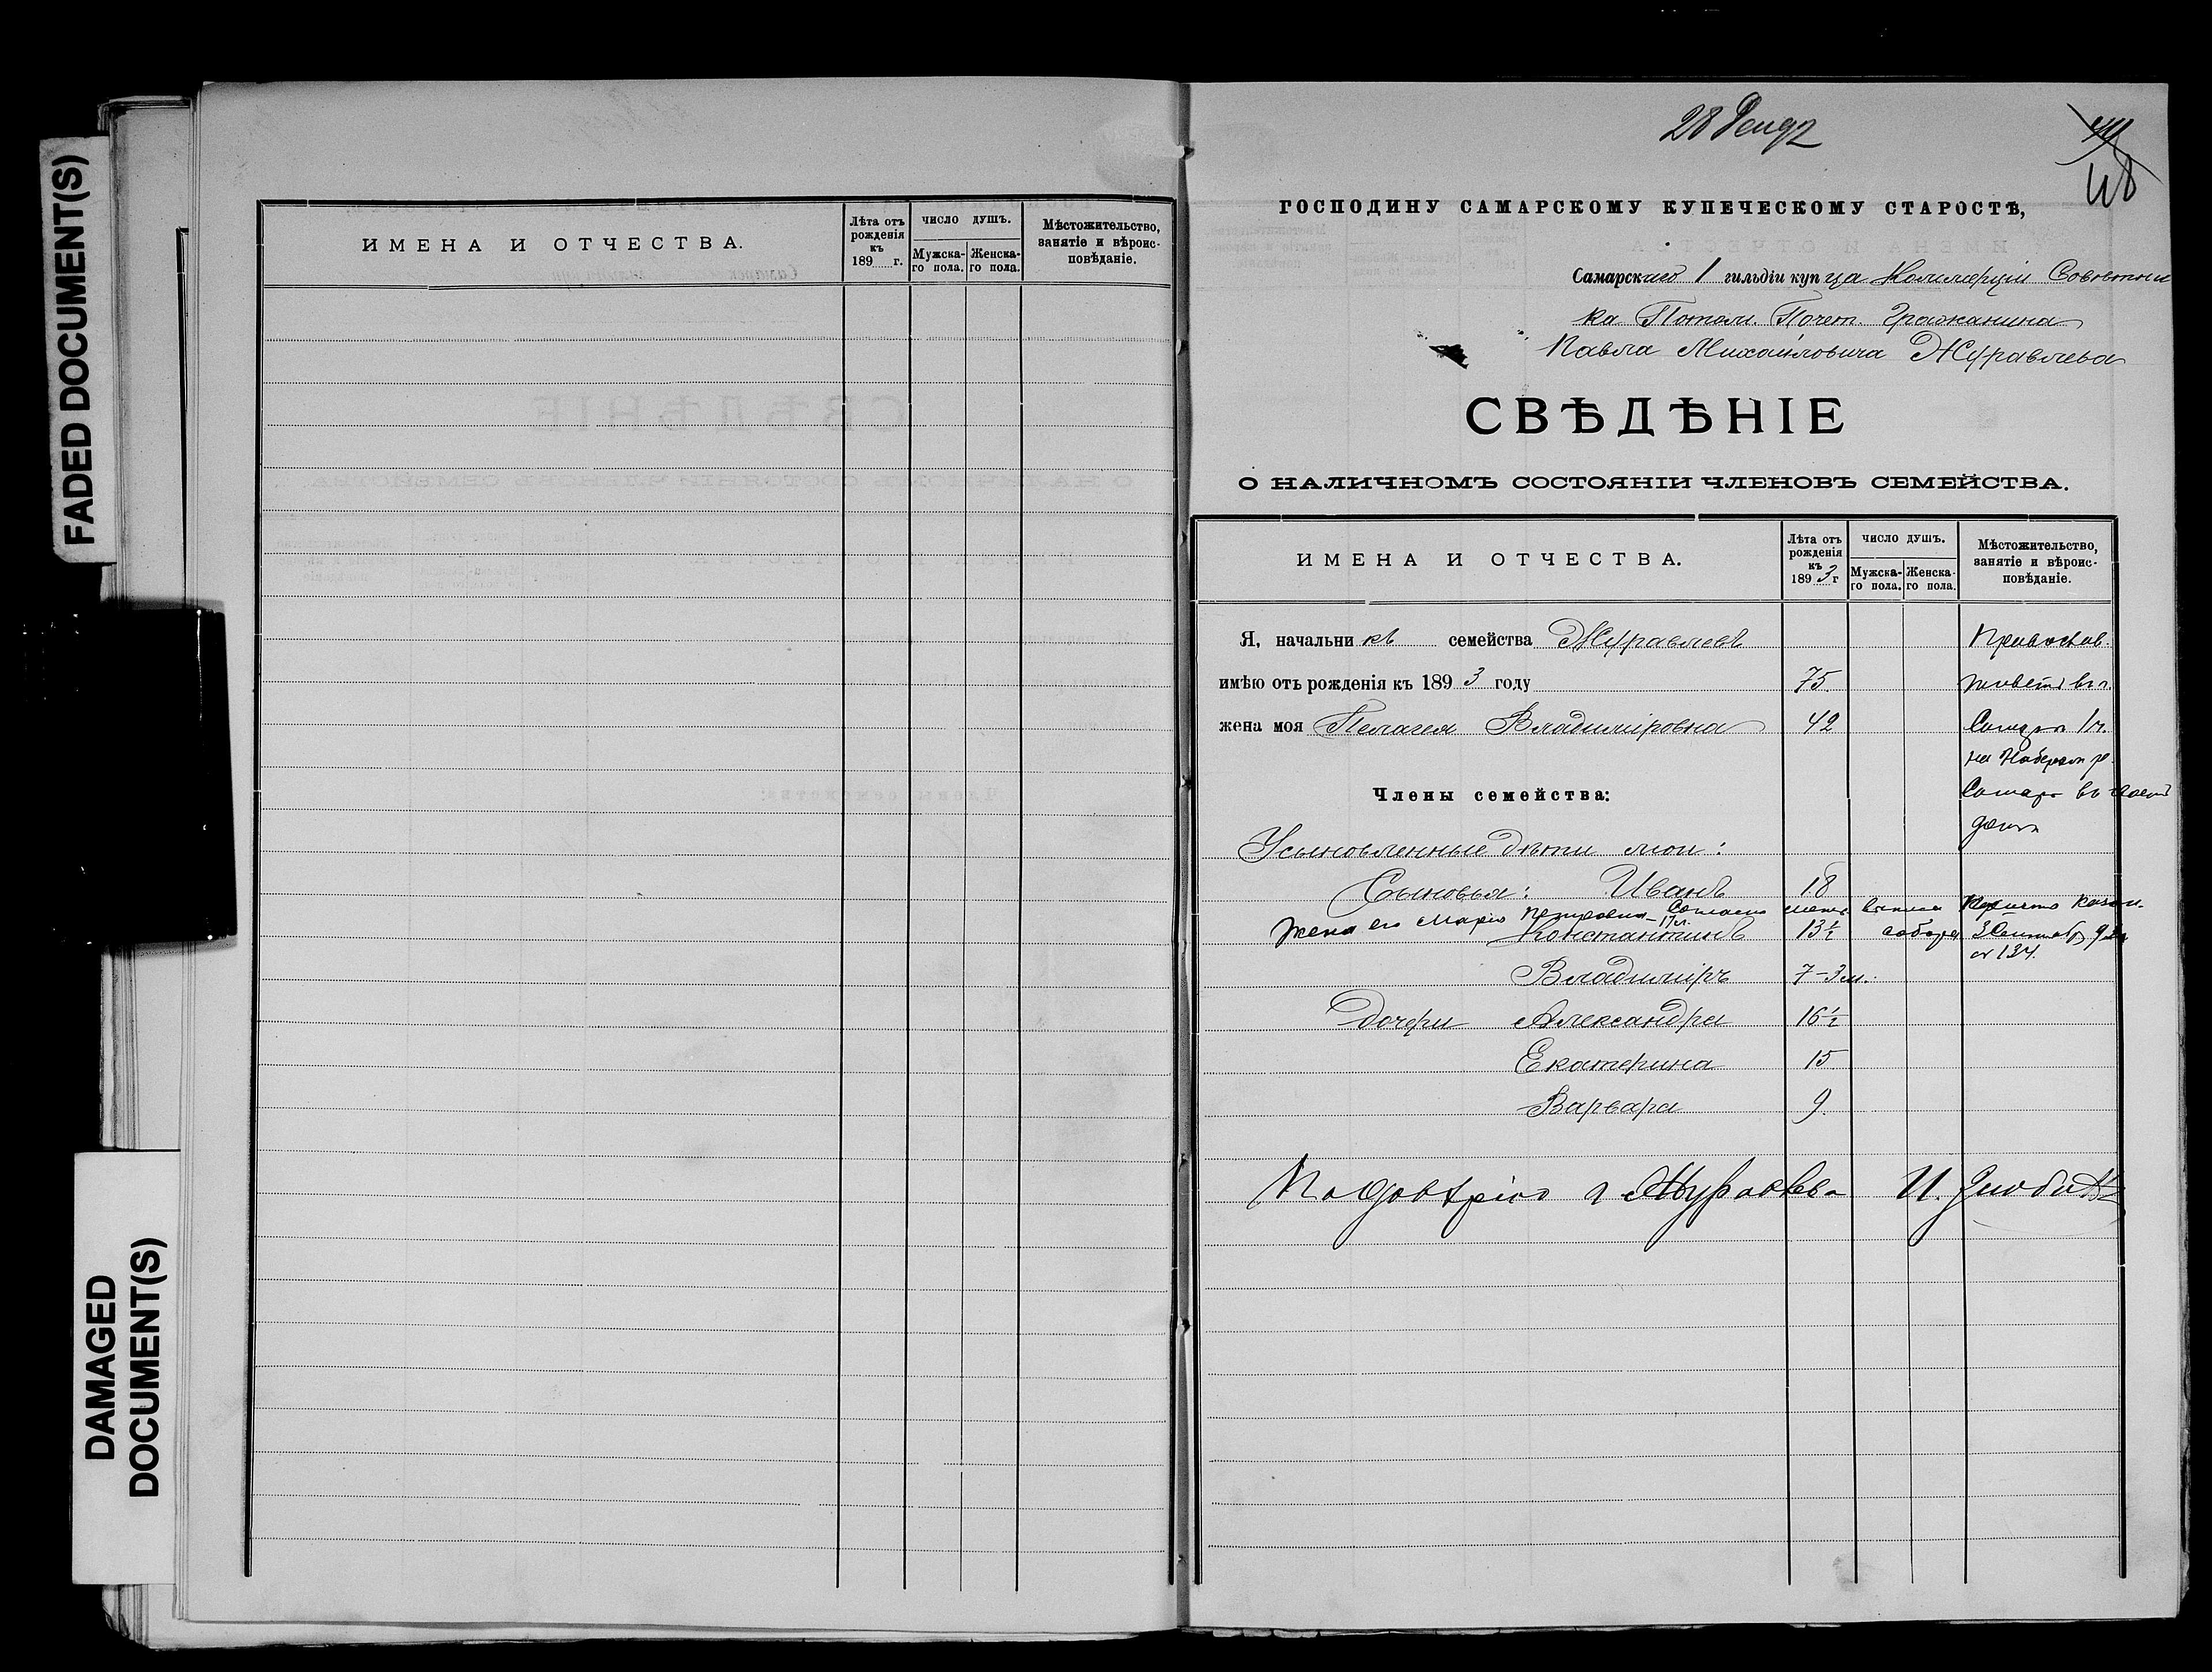 FADED DOCUMENT(S)
DAMAGED
DOCUMENT(S)
ИМЕНА И ОТЧЕСТВА.
Лѣта отъ
рожденія
къ
189 г.
ЧИСЛО ДУШЪ.
Мужска-
го пола.
Женска-
го пола.
Мѣстожительство,
занятіе и вѣроис-
повѣданіе.
28
118
ГОСПОДИНУ САМАРСКОМУ КУПЕЧЕСКОМУ СТАРОСТѢ,
Самарскаго 1 гильдіи купца Коммерціи Совѣтни
ка Потом. Почет. Гражанина
Павла Михайловича Журавлева
СВѢДѢНІЕ
О НАЛИЧНОМЪ СОСТОЯНІИ ЧЛЕНОВЪ СЕМЕЙСТВА.
ИМЕНА И ОТЧЕСТВА.
Лѣта отъ
рожденія
къ
1893 г
ЧИСЛО ДУШЪ.
Мужска-
го пола.
Женска-
го пола.
Мѣстожительство,
занятіе и вѣроис-
повѣданіе.
Я, начальникъ семейства Журавлевъ Православ.
имѣю отъ рожденія къ 1893 году 75. живетъ въ г.
жена моя Пелагея Владиміровна 42 1 ч.
на Набережн р.
Члены семейства: Самар въ своемъ
домѣ
Усыновленные дѣти мои:
Сыновья: Иванъ 18
Жена его Марія Петровна - 17 л. Согласно
Константинъ 13½ собора 3 Сентяб
№ 134.
Владиміръ 7-3 м.
Дочери Александра 16½
Екатерина 15
Варвара 9.
По довѣрію г Журавлева И.